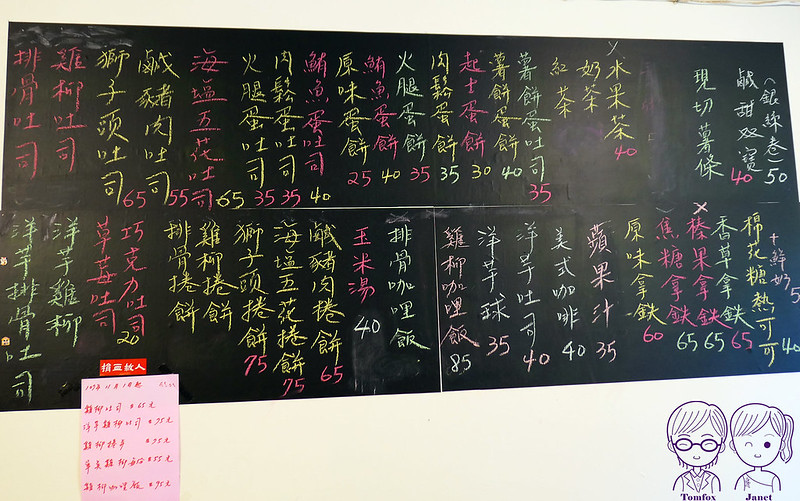 (銀絲卷) 50
鹹甜双寶 40
現切薯條
水果茶 40
奶茶
紅茶
薯餅蛋吐司 35
薯餅蛋餅 40
起士蛋餅 30
肉鬆蛋餅 35
火腿蛋餅 35
鮪魚蛋餅 40
原味蛋餅 25
鮪魚蛋吐司 40
肉鬆蛋吐司 35
火腿蛋吐司 35
海塩五花吐司 65
鹹豬肉吐司 55
獅子頭吐司 65
雞柳吐司
排骨吐司
+鮮奶5
棉花糖熱可可 40
香草拿鉄 65
榛果拿鉄 65
焦糖拿鉄 65
原味拿鉄 60
蘋果汁 35
美式咖啡 40
洋芋吐司 40
洋芋球 35
雞柳咖哩飯 85
排骨咖哩飯
玉米湯 40
鹹豬肉捲餅 65
海塩五花捲餅 75
獅子頭捲餅 75
雞柳捲餅
排骨捲餅
巧克力吐司 20
草莓吐司
洋芋雞柳
洋芋排骨吐司
雞柳吐司 65元
洋芋雞柳吐司 75元
雞柳捲餅 75元
雞柳咖哩飯 95元
Tomfox
Janet